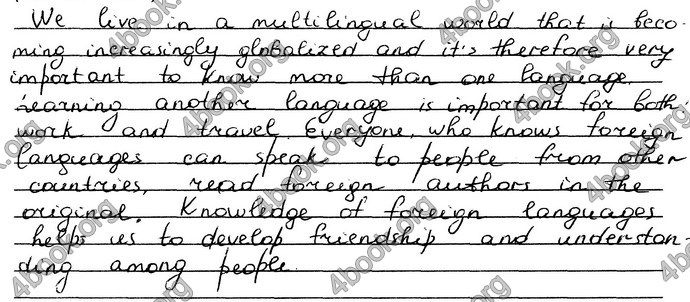 We live in a multilingual world that is beco-
ming increasingly globalized and it's therefore very
important to know more than one language.
Learning another language is important for both
work and travel. Everyone, who knows foreign
languages can speak to people from other
countries, read foreign authors in the
original. Knowledge of foreign languages
helps us to develop friendship and understan-
ding among people.
4book.org